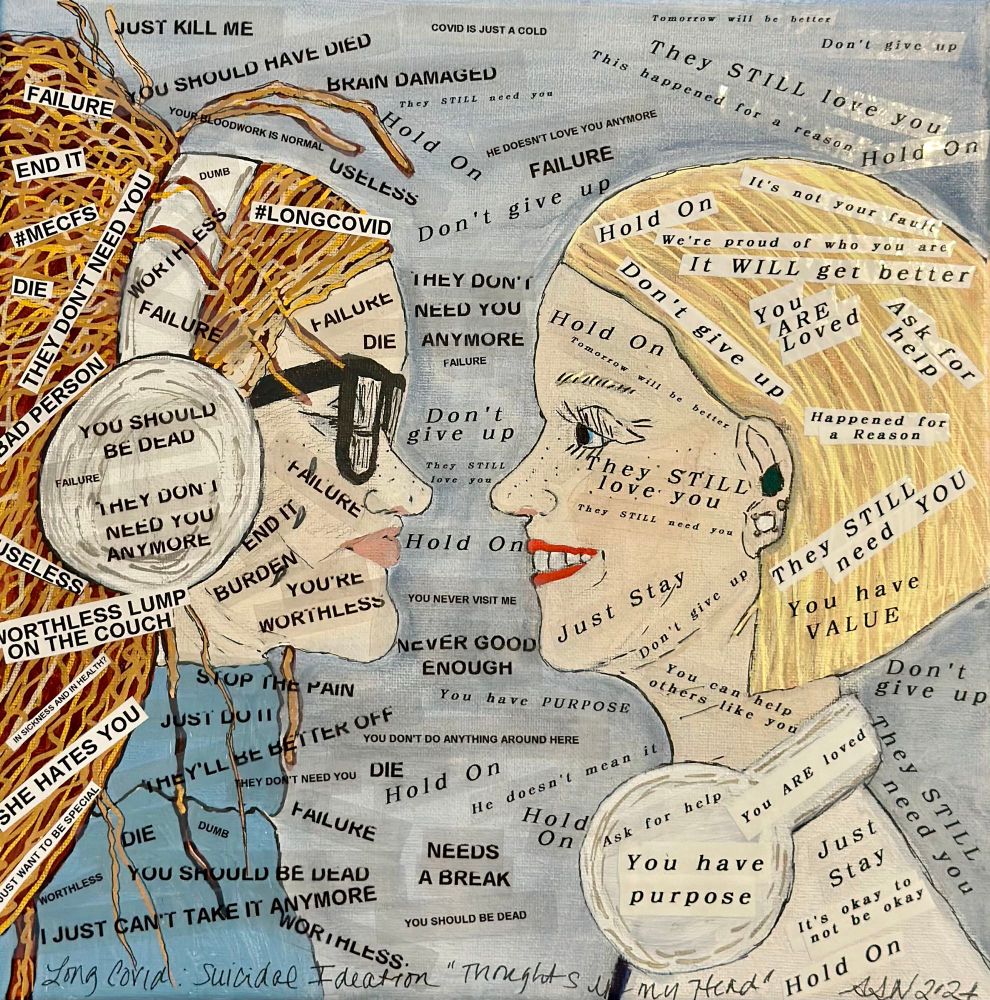 JUST KILL ME
COVID IS JUST A COLD
Tomorrow will be better
Don't give up
YOU SHOULD HAVE DIED
They STILL love you
This happened for a reason
BRAIN DAMAGED
They STILL need you
FAILURE
YOUR BLOODWORK IS NORMAL
Hold On
HE DOESN'T LOVE YOU ANYMORE
Hold On
END IT
DUMB
USELESS
FAILURE
It's not your fault
#MECFS
THEY DON'T NEED YOU
WORTHLESS
#LONGCOVID
Don't give up
Hold On
We're proud of who you are
It WILL get better
DIE
FAILURE
FAILURE
DIE
THEY DON'T
NEED YOU
ANYMORE
FAILURE
Don't give up
You
ARE
Loved
Ask for
help
Hold On
Tomorrow will be better
BAD PERSON
YOU SHOULD
BE DEAD
FAILURE
THEY DON'T
NEED YOU
ANYMORE
Don't
give up
They STILL
love you
Happened for
a Reason
FAILURE
They STILL
love you
They STILL need you
END IT
Hold On
They STILL
need YOU
USELESS
BURDEN
YOU'RE
WORTHLESS
YOU NEVER VISIT ME
Just Stay
Don't give up
You have
VALUE
WORTHLESS LUMP
ON THE COUCH
NEVER GOOD
ENOUGH
IN SICKNESS AND IN HEALTH?
STOP THE PAIN
You have PURPOSE
You can help
others like you
Don't
give up
SHE HATES YOU
JUST DO IT
THEY'LL BE BETTER OFF
YOU DON'T DO ANYTHING AROUND HERE
THEY DON'T NEED YOU
DIE
Hold On
He doesn't mean it
You ARE loved
They STILL
need you
JUST WANT TO BE SPECIAL
DIE
DUMB
FAILURE
Hold
On
Ask for help
You have
purpose
Just
Stay
NEEDS
A BREAK
WORTHLESS
YOU SHOULD BE DEAD
I JUST CAN'T TAKE IT ANYMORE
WORTHLESS.
YOU SHOULD BE DEAD
It's okay to
not be okay
Hold On
Long Covid: Suicidal Ideation "Thoughts in my Head"